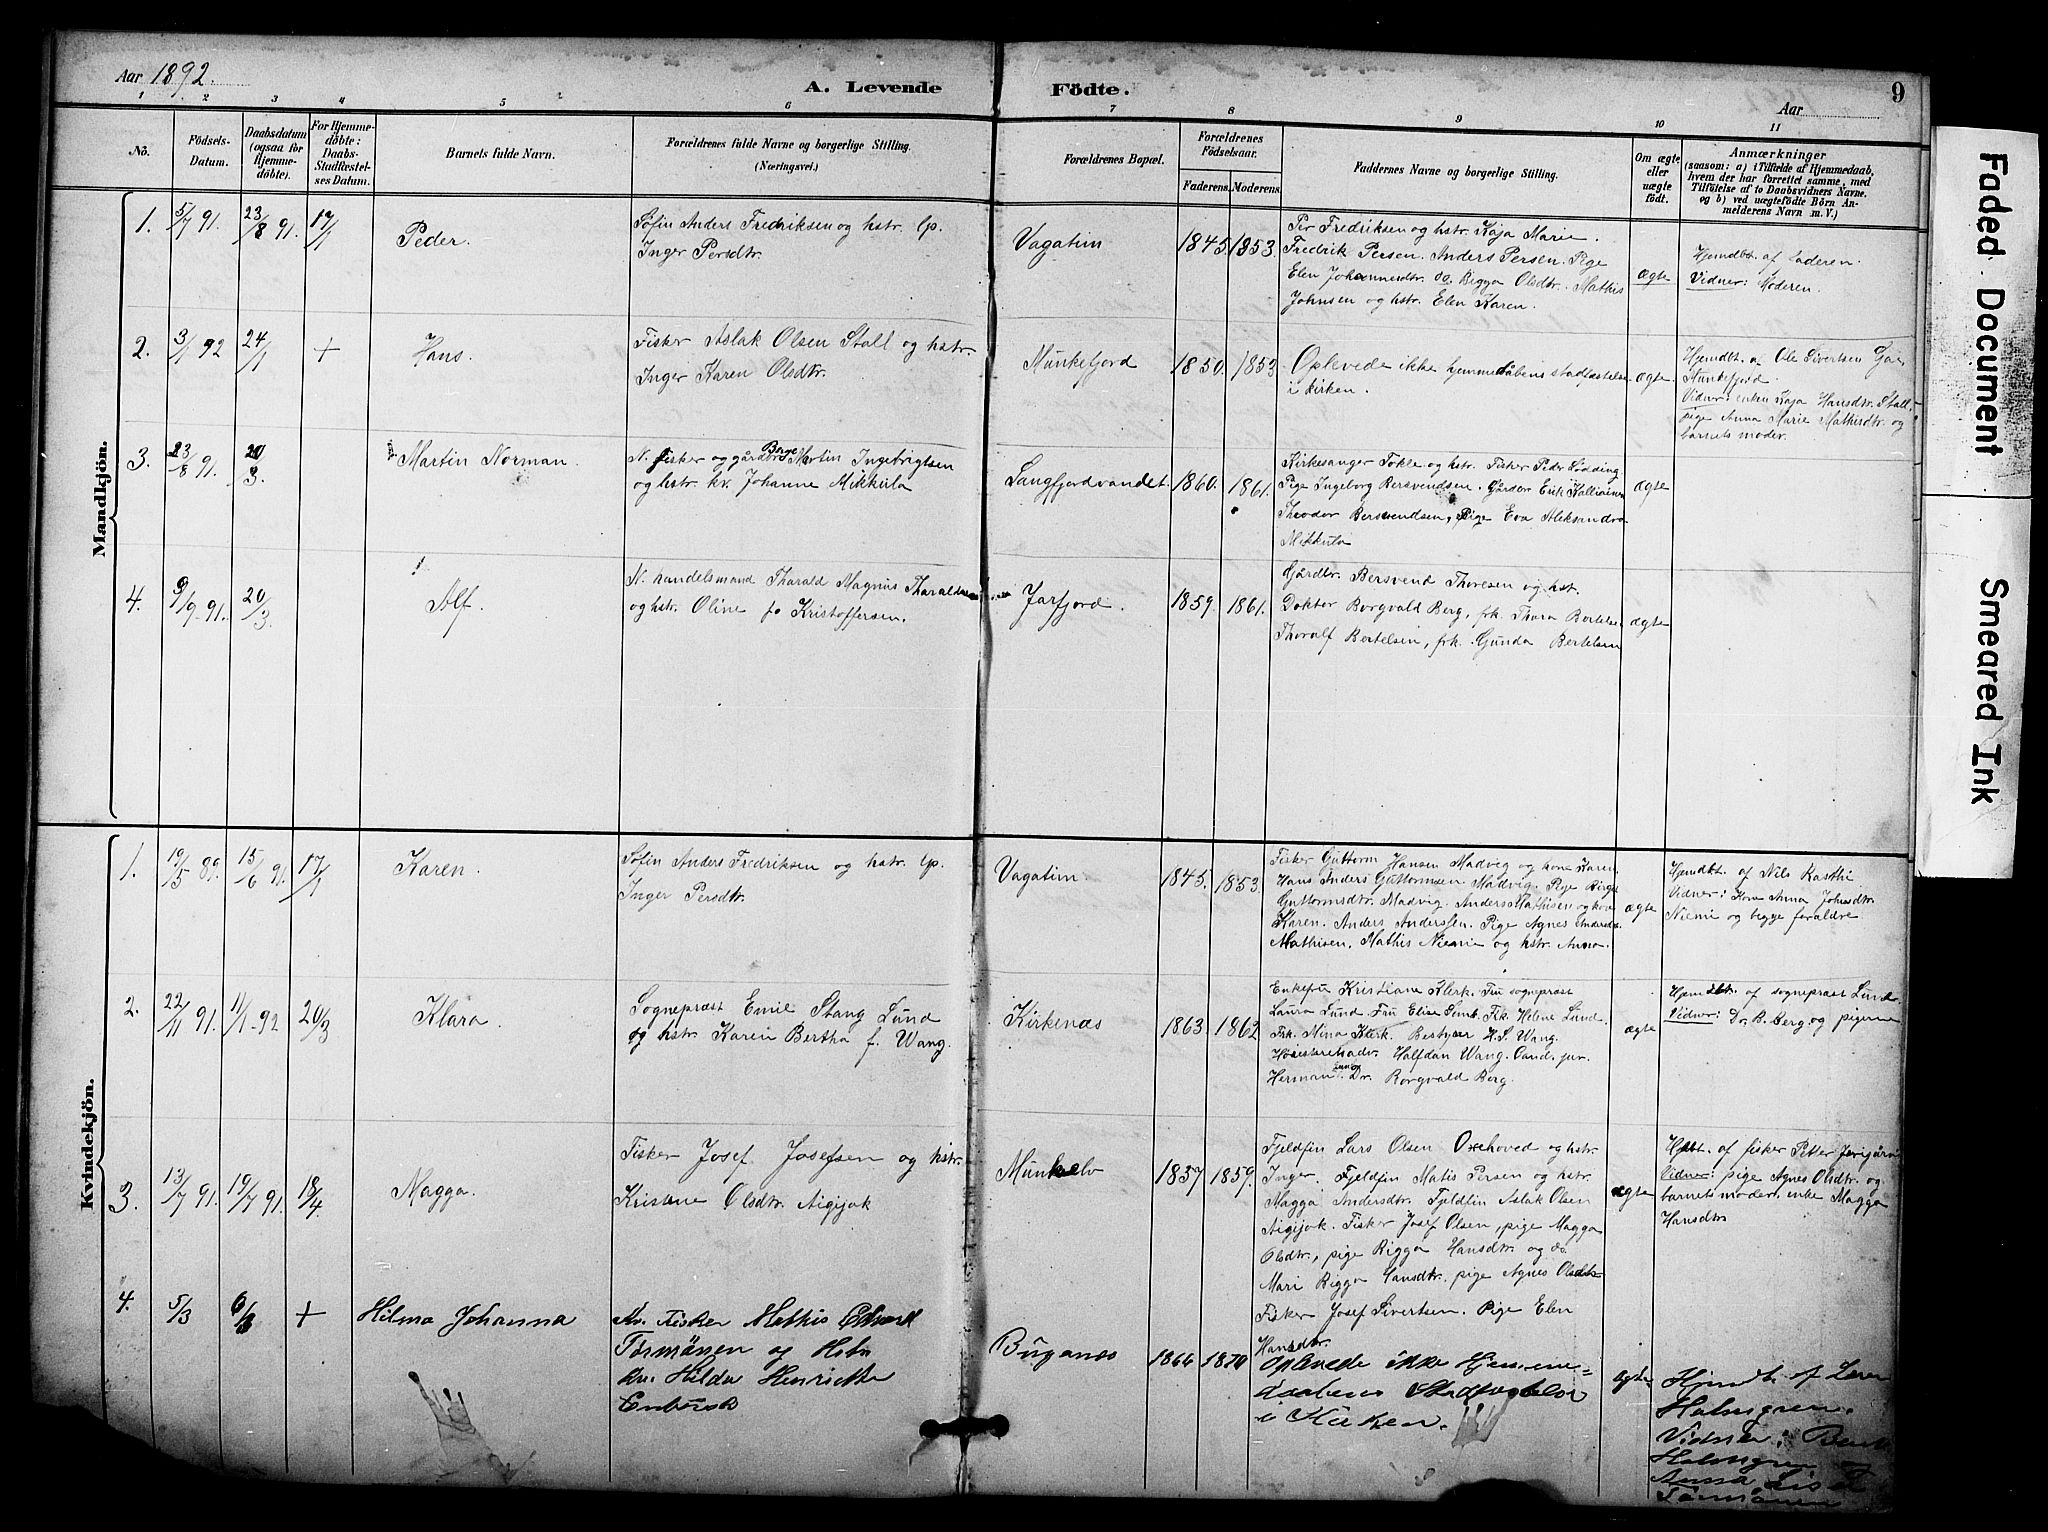 Aar 1892.
A. Levende Födte.
Aar
9
1 2 3 4 5 6 7 8 9 10 11
No.
Födsels-Datum.
Daabsdatum (ogsaa for Hjemme-döbte).
For Hjemme-döbte: Daabs-Stadfæstel-ses Datum.
Barnets fulde Navn.
Forældrenes fulde Navne og borgerlige Stilling.
(Næringsvei.)
Forældrenes Bopæl.
Forældrenes Födselsaar.
Faderens. Moderens.
Faddernes Navne og borgerlige Stilling.
Om ægte eller uægte födt.
Anmærkninger
(saasom: a) i Tilfælde af Hjemmedaab, hvem der har forrettet samme, med Tilföielse af to Daabsvidners Navne. og b) ved uægtefödte Börn An-melderens Navn m. V.)
Mandkjön.
1. 5/7 91. 23/8 91. 17/1 Peder.
Søfin Anders Fredriksen og hstr. lp.
Inger Persdtr.
Vagatim 1845. 1853.
Per Fredriksen og hstr. Kaja Marie.
Fredrik Persen. Anders Persen. Pige
Elen Johannesdtr. do. Bigga Olsdtr. Mathis
Johnsen og hstr. Elen Karen.
ægte
Hjemdbt. af faderen.
Vidner: Moderen.
2. 3/1 92 24/1 + Hans.
Fisker Aslak Olsen Stall og hstr.
Inger Karen Olsdtr.
Munkefjord 1850. 1853
Oplevede ikke hjemmedåbens stadfæstelse
i kirken.
ægte
Hjemdbt. a Ole Sivertsen
Munkefjord.
Vidner: enken Kaja Hansdtr. Stall,
pige Anna Marie Mathisdtr. og
barnets moder.
3. 23/8 91. 20/3. Martin Norman.
N. fisker og gårdbr. Martin Ingebrigtsen
og hstr. kv. Johanne Mikkula
Langfjordvandet. 1860. 1861.
Kirkesanger Tokle og hstr. Fisker Peder
Pige Ingeborg Bersvendsen. Gårdbr. Erik
Theodor Bersvendsen, Pige Eva Aleksandra
Mikkula
ægte
4. 9/9 91. 20/3. Alf.
N. handelsmand Tharald Magnus Tharaldsen
og hstr. Oline fø Kristoffersen.
Jarfjord. 1859. 1861.
Gårdbr. Bersvend Thoresen og hst.
Doktor Borgvald Berg, frk. Thora Bertelsen
Thoralf Bertelsen, frk. Gunda Bertelsen
ægte
Kvindekjön.
1. 19/5 89. 15/6 91. 17/1 Karen.
Søfin Anders Fredriksen og hstr. lp.
Inger Persdtr.
Vagatim. 1845. 1853.
Fisker Guttorm Hansen Madvig og kone Karen.
Hans Anders Guttormsen Madvig. Pige Birgit
Guttormsdtr. Madvig. Anders Mathisen og kone
Karen. Anders Andersen. Pige Agnes Andersdtr.
Mathisen. Mathis Niemi og hstr. Anna.
ægte
Hjemdbt. af Nils
Vidner: Kone Anna Johnsdtr.
Niemi og begge forældre.
2. 22/11 91. 11/1-92 20/3 Klara.
Sognepræst Emil Stang Lund
og hstr. Karen Bertha f. Wang.
Kirkenæs 1863. 1862
Enkefru Kristiane Klerk. Fru sognepræst
Laura Lund. Fru Elise Frk. Helene Lund.
Frk. Nina Klerk. Bestyrer H. S. Wang.
Høiesteretsadv. Halfdan Wang. Cand. jur.
Herman Lund Dr. Borgvald Berg.
ægte
Hjemdbt. af sognepræst Lund.
Vidner: Dr. B. Berg og pigerne
3. 13/7 91. 19/7 91. 18/4 Magga.
Fisker Josef Josefsen og hstr.
Kristene Olsdtr. Aigijok
Munkelv 1837 1859.
Fjeldfin Lars Olsen Oxehoved og hstr.
Inger. Fjeldfin Matis Persen og hstr.
Magga Andersdtr. Fjeldfin Aslak Olsen
Aigijok. Fisker Josef Olsen, pige Magga
Olsdtr., pige Bigga Hansdtr. og do
Mari Bigga Hansdtr. pige Agnes Olsdtr.
Fisker Josef Sivertsen. Pige Elen
Hansdtr.
ægte
Hjdbt. af fisker Petter
Vidner: pige Agnes Olsdtr. og
barnets moder, enke Magga
Hansdtr
4. 5/3 6/3 + Hilma Johanna
Kv. Fisker Mathis Edvard
Tormänen og Hstr
kv. Hilda Henriette
Enbusk
Bugønæs 1866 1870
Oplevede ikke Hjemme-
daabens Stadfæstelse
i Kirken.
ægte
Hjmdt. af
Holmgren.
Vidner:
Holmgren og
Anna
Tormänen
Faded Document
Smeared Ink